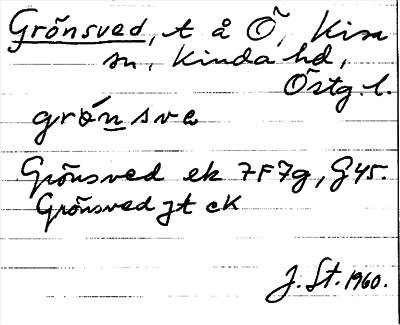 Grönsved, t å Ö, Kisa
sn, Kinda hd,
Östg. l.
grǿnsve
Grönsved ek 7F7g, G45.
Grönsved jt eK
J. St. 1960.